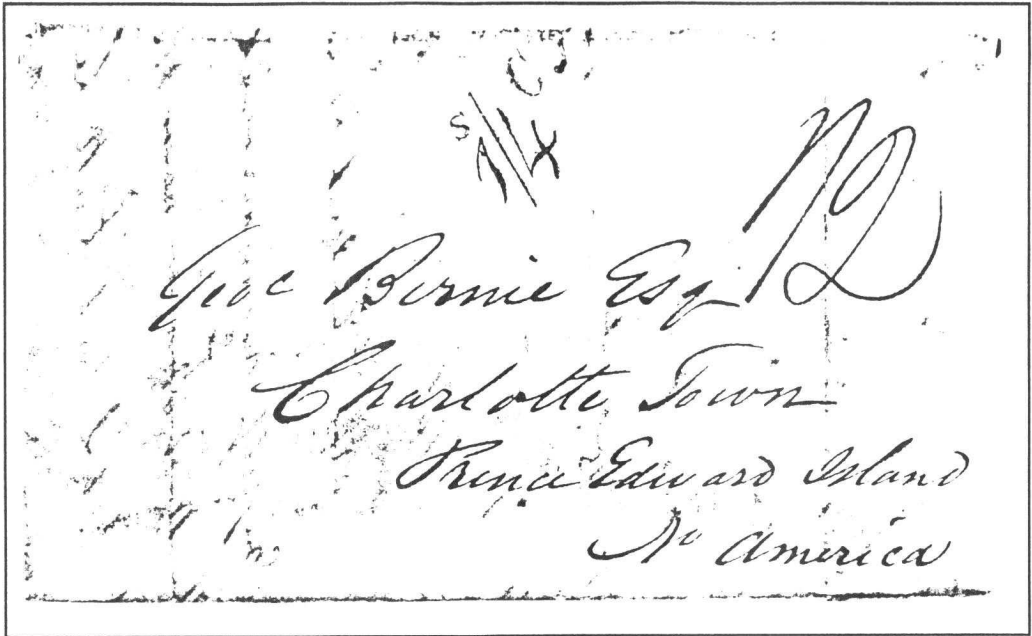 S
A X
N2
Geoe Birnie Esq
Charlotte Town
Prince Edward Island
No America